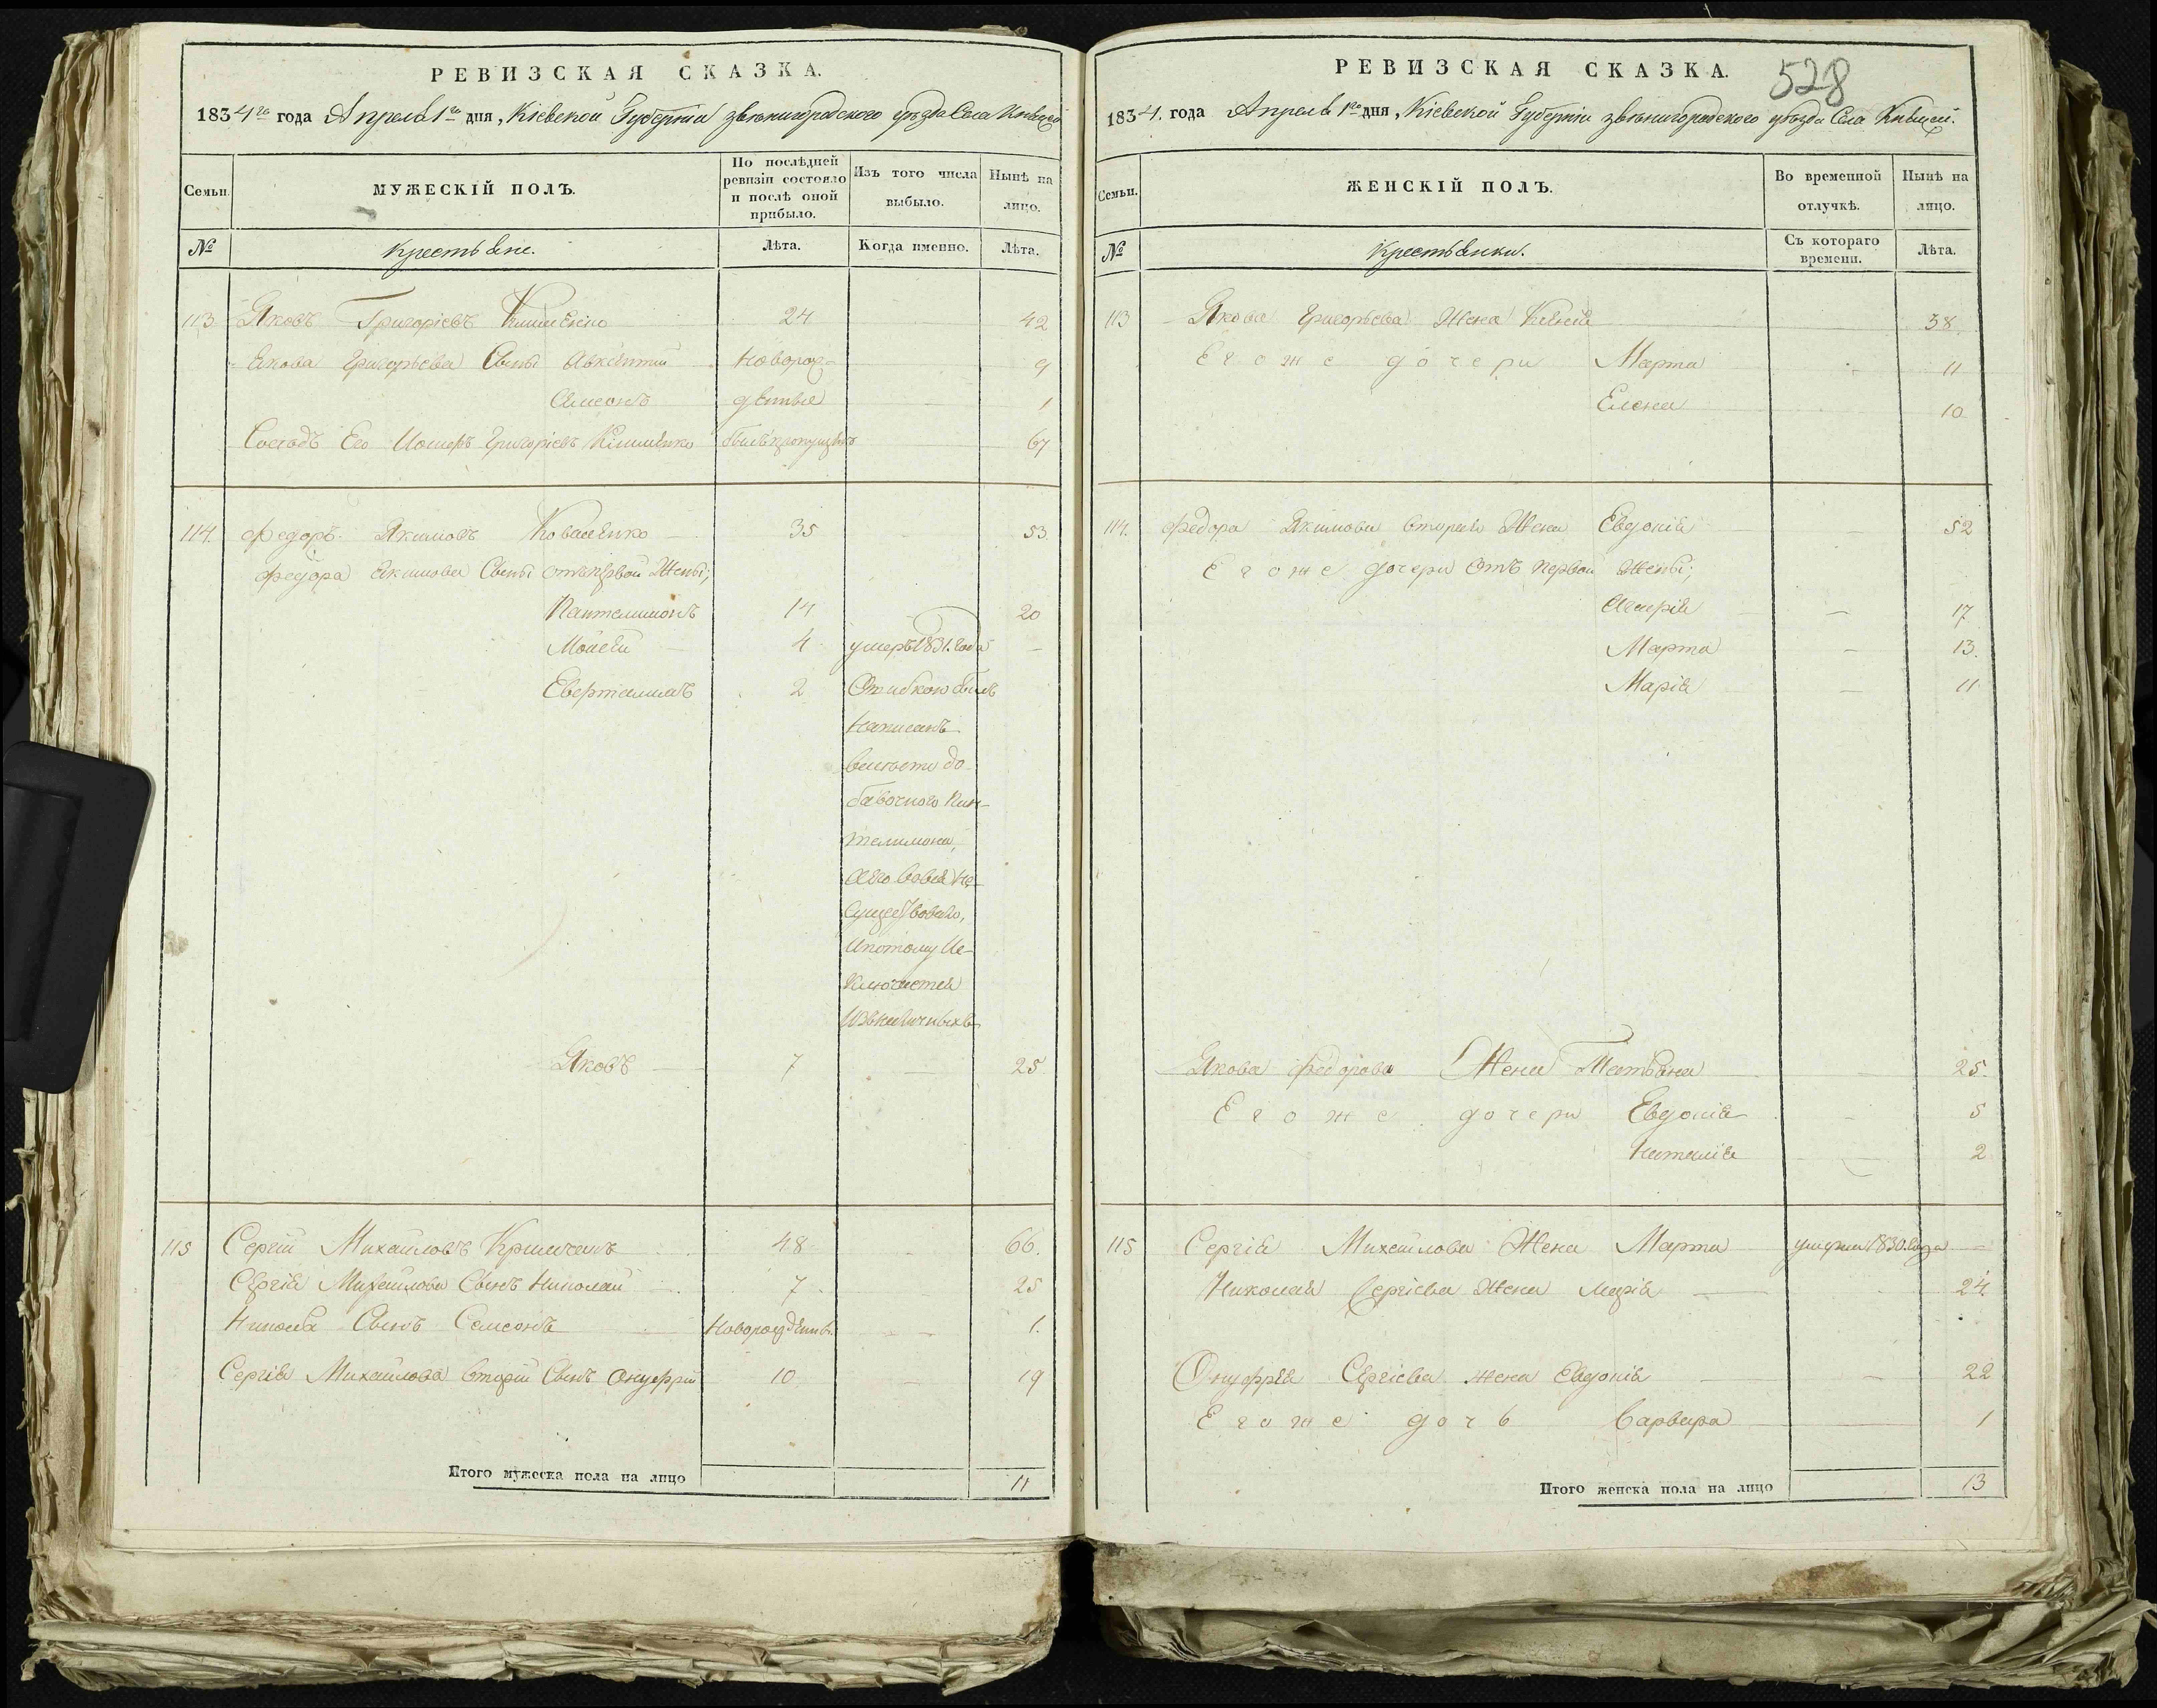 РЕВИЗСКАЯ СКАЗКА.
1834го года Апреля 1го дня, Кіевской Губерніи звѣнигородского уѣзда Села
Семьи.
МУЖЕСКІЙ ПОЛЪ.
По послѣдней ревизіи состояло и послѣ оной прибыло.
Изъ того числа выбыло.
Нынѣ на лицо.
№
Крестьяне.
Лѣта.
Когда именно.
Лѣта.
113 Яковъ Григоріевъ 24 42
Якова Григорьева Сыны Авксентий Новорож- 9
Самсонъ денные 1
Его Григоріевъ 67
114. Федоръ Якимовъ Коваленко 35 53
Федора Якимова Сыны отъ первой Жены;
Пантелимонъ 14 20
Моисей 4 умеръ 1831. года —
2 Ошибкою былъ
написанъ
вместо до-
бавочного Пан-
телимона,
а его вовся не
существовало,
и потому Ис-
ключается
изъ наличныхъ
Яковъ 7 25
115 Сергій Михайловъ 48 66.
Сергія Михайлова Сынъ Николай 7 25
Николая Сынъ Самсонъ Новорожденны. 1.
Сергія Михайлова вторый Сынъ Онуфрій 10 19
Итого мужеска пола на лицо 11
РЕВИЗСКАЯ СКАЗКА.
528
1834. года Апреля 1го дня, Кіевской Губерніи звѣнигородского уѣзда Села
Семьи.
ЖЕНСКІЙ ПОЛЪ.
Во временной отлучкѣ.
Нынѣ на лицо.
№
Крестьянки.
Съ котораго времени.
Лѣта.
113 Якова Григорьева Жена 38.
Его же дочери Марта 11
Елена 10
114. Федора Якимова вторая Жена Евдокія 52
Его же дочери отъ первой Жены;
17
Марта 13.
Марія 11
Якова Федорова Жена Татьяна 25.
Его же дочери Евдокія 5
Наталія 2
115 Сергія Михайлова Жена Марта умерла 1830. года —
Николая Сергіева Жена Марія 24
Онуфрія Сергіева жена Евдокія 22
Его же дочь Варвара 1
Итого женска пола на лицо 13